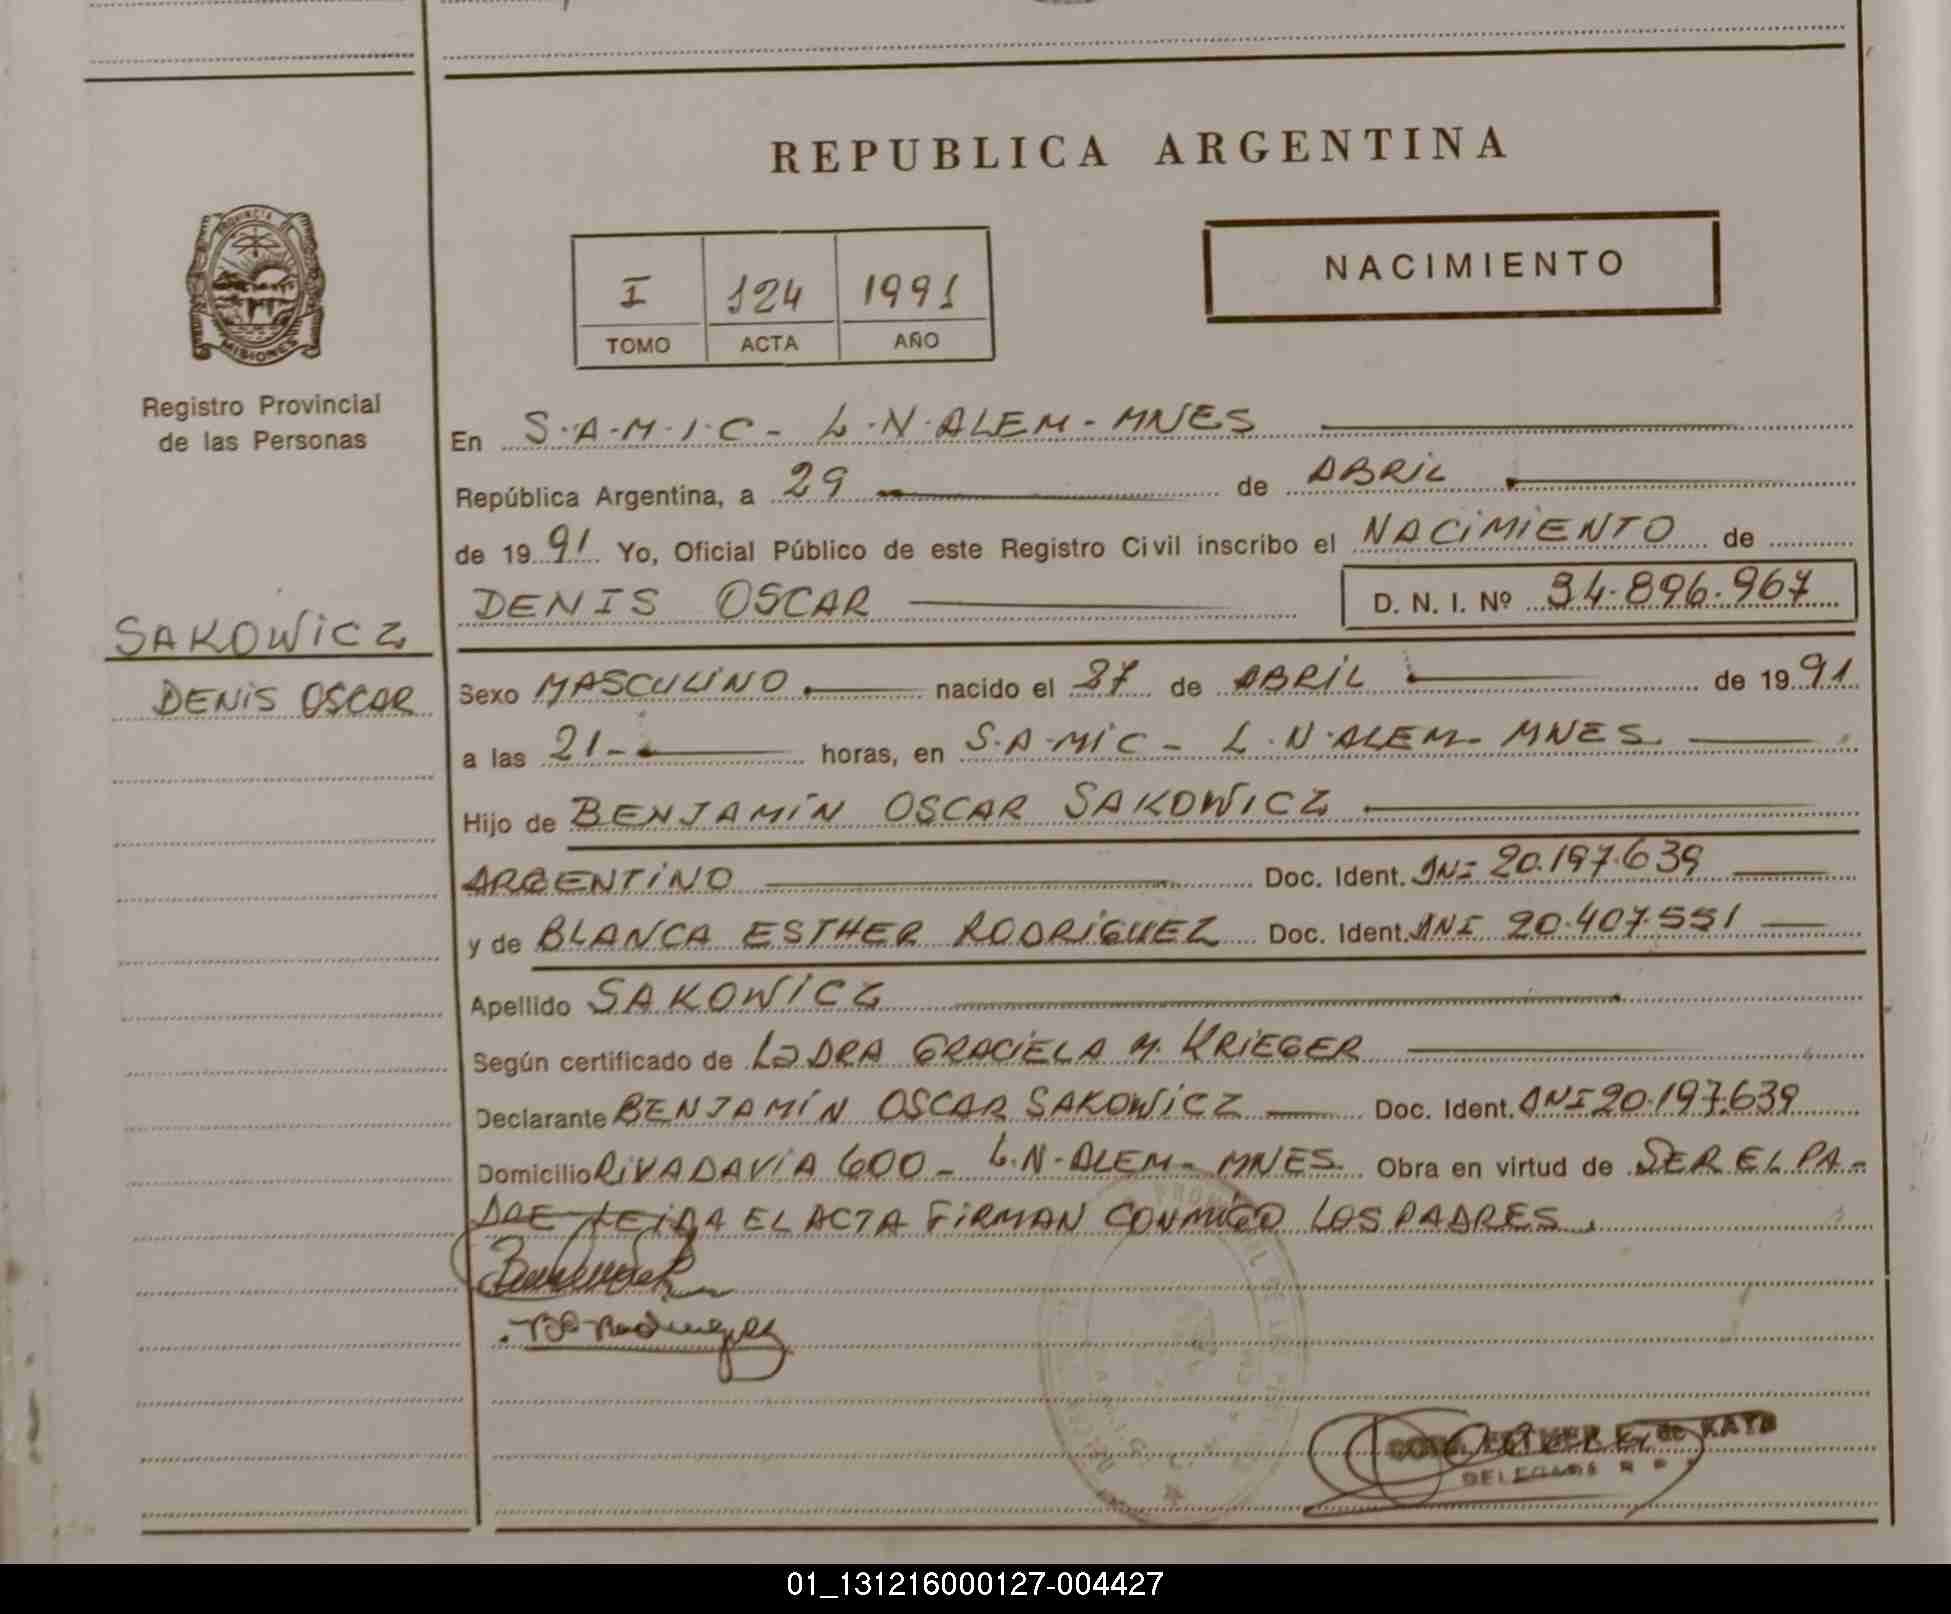 REPUBLICA ARGENTINA
NACIMIENTO
I 124 1991
TOMO ACTA AÑO
PROVINCIA DE
MISIONES
Registro Provincial
de las Personas
SAKOWICZ
DENIS OSCAR
En S.A.M.I.C - L.N.ALEM - MNES
República Argentina, a 29 de ABRIL
de 1991 Yo, Oficial Público de este Registro Civil inscribo el NACIMIENTO de
DENIS OSCAR D. N. I. Nº 34.896.967
Sexo MASCULINO nacido el 27 de ABRIL de 1991
a las 21- horas, en S.A.MIC - L.N.ALEM - MNES
Hijo de BENJAMIN OSCAR SAKOWICZ
ARGENTINO Doc. Ident. DNI 20.197.639
y de BLANCA ESTHER RODRIGUEZ Doc. Ident. DNI 20.407.551
Apellido SAKOWICZ
Según certificado de La DRA GRACIELA M. KRIEGER
Declarante BENJAMÍN OSCAR SAKOWICZ Doc. Ident. DNI 20.197.639
Domicilio RIVADAVIA 600 - L.N-ALEM - MNES. Obra en virtud de SER EL PA-
DRE LEIDA EL ACTA FIRMAN CONMIGO LOS PADRES.
B Rodriguez
ESTHER de KAYA
DELEGADA
01_131216000127-004427